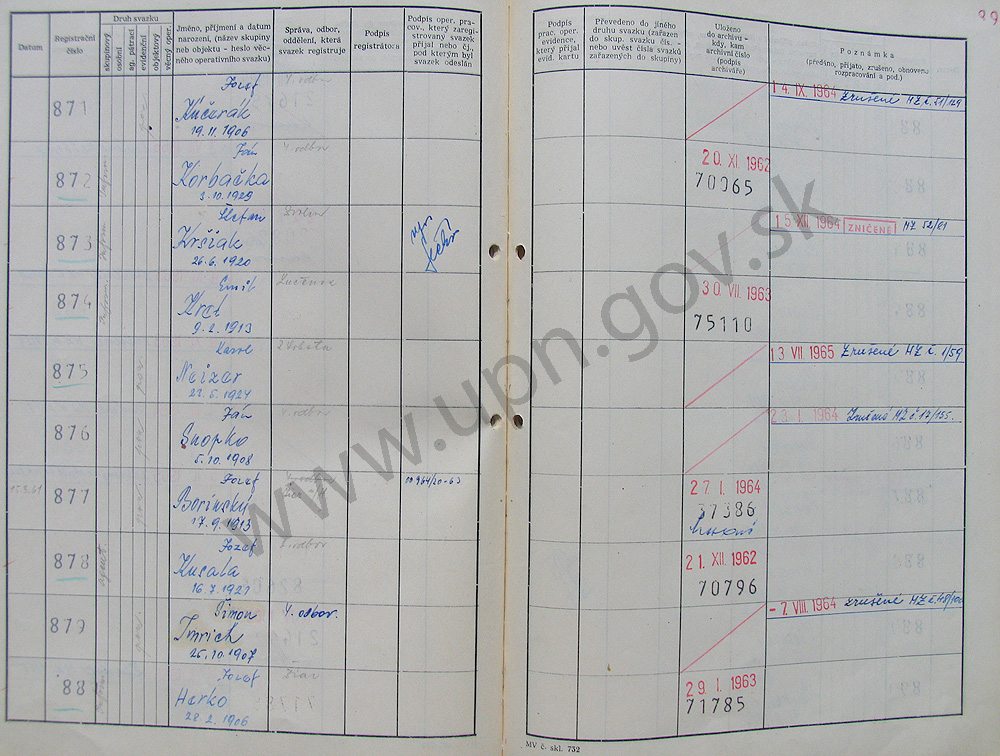 Datum
Registrační
číslo
Druh svazku
skupinový
osobní
sg. pátrací
evidenční
objektový
věcný oper.
Jméno, příjmení a datum
narození, (název skupiny
neb objektu - heslo věc-
ného operativního svazku)
Správa, odbor,
oddělení, která
svazek registruje
Podpis
registrátora
Podpis oper. pra-
cov., který zaregi-
strovaný svazek
přijal nebo čj.,
pod kterým byl
svazek odeslán
Podpis
prac. oper.
evidence,
který přijal
evid. kartu
Převedeno do jiného
druhu svazku (zařazen
do skup. svazku čís. -
nebo uvést čísla svazků
zařazených do skupiny)
Uloženo
do archivu -
kdy, kam
archivní číslo
(podpis
archiváře)
Poznámka
(předáno, přijato, zrušeno, obnoveno
rozpracování a pod.)
871
Jozef
Kučerák
19.11.1906
14. IX. 1964 Zrušené MZ č. 51/129
872
Ján
Korbačka
3.10.1929
20. XI. 1962
70065
873
Štefan
Kršiak
26.6.1920
15. XII. 1964 ZNIČENÉ MZ 52/61
874
Emil
Krcl
9.2.1913
Lučenec
30. VII. 1963
75110
875
Karol
Neizer
13 VII. 1965 Zrušené MZ č. 1/59
876
Ján
Snopko
5.10.1908
V. odbor
23. I. 1964
877
Jozef
Borinský
17.9.1913
27. I. 1964
37386
878
agent
Jozef
Kusala
16.7.1921
V. odbor
21. XII 1962
70796
879
Šimon
Imrich
25.10.1907
V. odbor.
- 7. VIII. 1964 zrušené
88
Jozef
Herko
28.2.1906
29. I. 1963
71785
MV č. skl. 732
www.upn.gov.sk